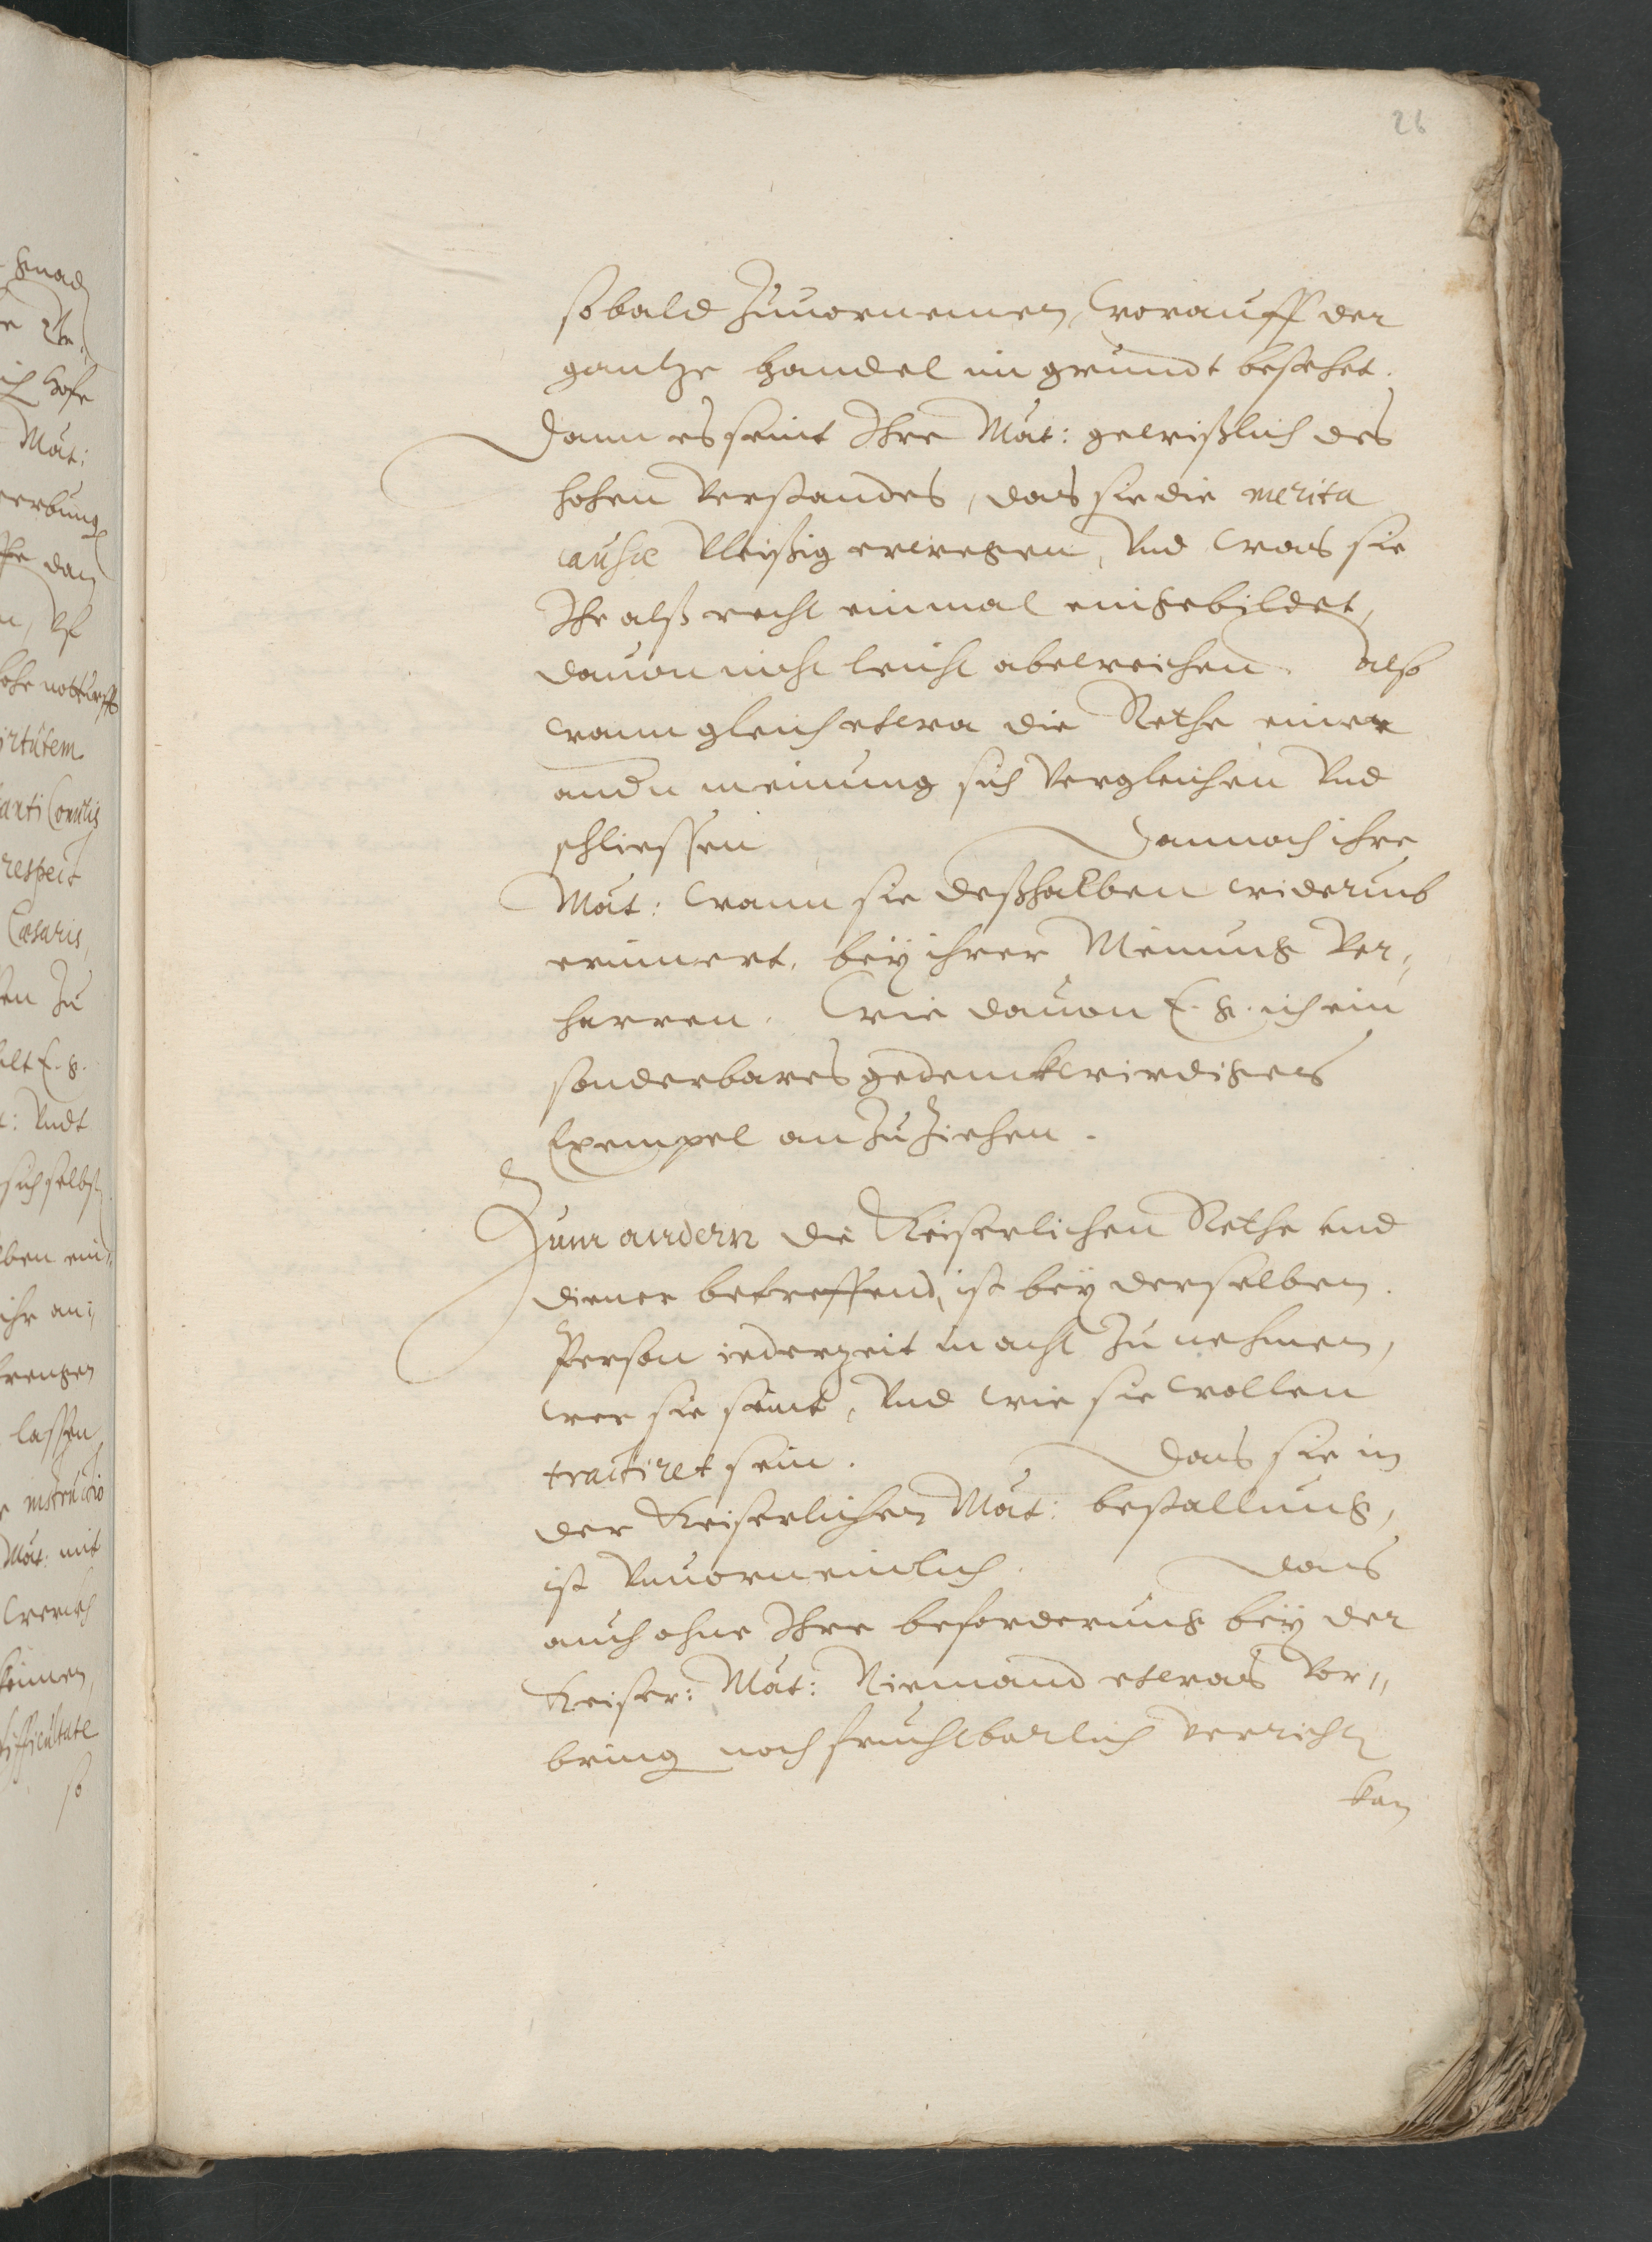 26
sobald zuuornemen, worauff der
gantze handel im grundt bestehet.
Dann es seint Ihre Mät: gewißlich des
hohen Verstandes, das sie die merita
causæ Vleißig erwegen, Vnd was sie
Ihr alß recht einmal eingebildet,
dauon nicht leicht abweichen. also
wann gleich etwa die Rethe einer
andn meinung sich Vergleichen Vnd
schliessen Dannoch ihre
Mät: wann sie deßhalben widerumb
erinnert, bey ihrer Meinung Ver,,
harren. Wie dauon E. g. ich ein
sonderbares gedenckwirdiges
Exempel anzuziehen.
Zum andern die Keiserlichen Rethe vnd
diener betreffend, ist bey derselben
Person iederzeit in acht zu nehmen,
wer sie seint, Vnd wie sie wollen
tractiret sein. Dans sie in
der Keiserlichen Mät: bestallung,
ist Vnuorneinlich. Dans
auch ohne Ihre beforderung bey der
Keiser: Mät: Niemand etwas Vor,,
bring noch fruchtbarlich verricht
kan
gnad
Hofe
Mät:
werbung
dan
hohe notturfft
virtutem
respect
Cæsaris,
zu
E. g.
Vndt
sich selbst
ein,,
ihr an,,
lassen
instructio
Mät: mit
difficultate
so